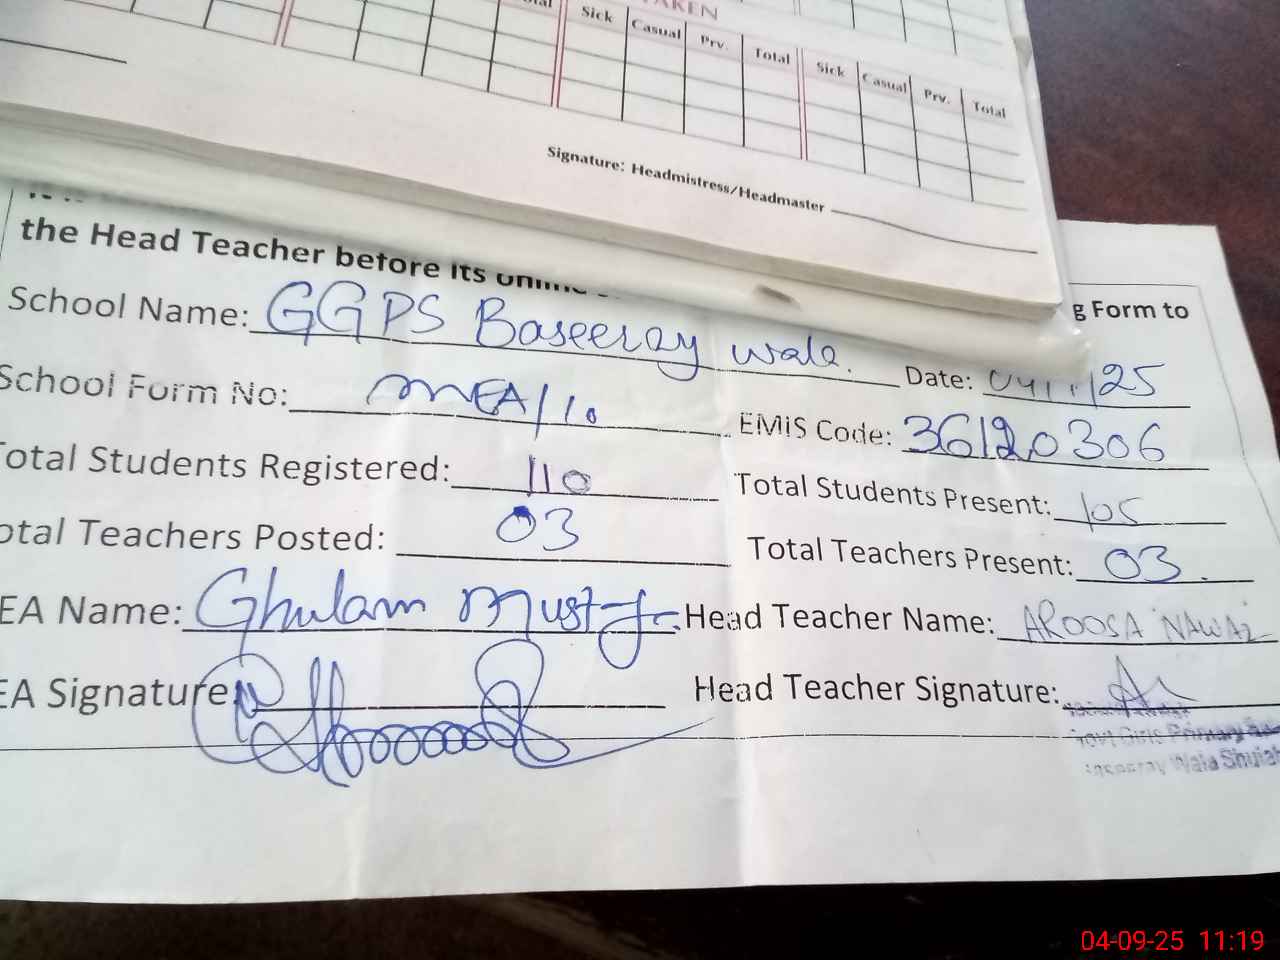 TAKEN
Sick Casual Prv. Total Sick Casual Prv. Total
Signature: Headmistress/Headmaster
the Head Teacher before its
g Form to
School Name: GGPS Baseeray wala.
Date: 25
School Form No: MEA/10
EMIS Code: 36120306
Total Students Registered: 110
Total Students Present: 105
otal Teachers Posted: 03
Total Teachers Present: 03.
EA Name: Ghulam
Head Teacher Name: AROOSA NAWAZ
EA Signature
Head Teacher Signature:
Govt Girls Primary
Wala Shujab
04-09-25 11:19